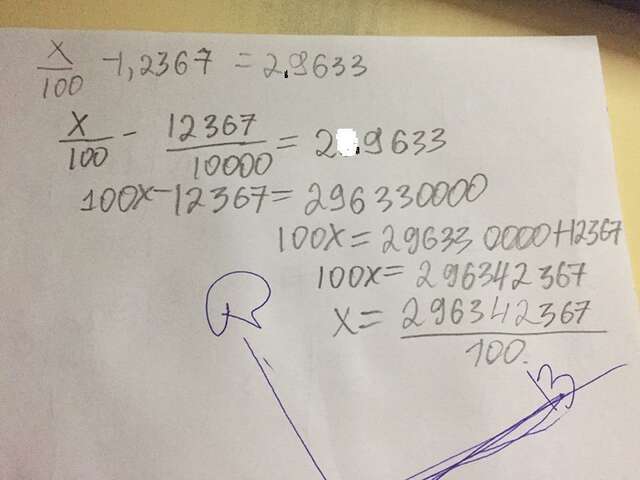 x/100 - 1,2367 = 2,9633
x/100 - 12367/10000 = 2 9633
100x - 12367 = 296330000
100x = 296330000 + 12367
100x = 296342367
x = 296342367/100.